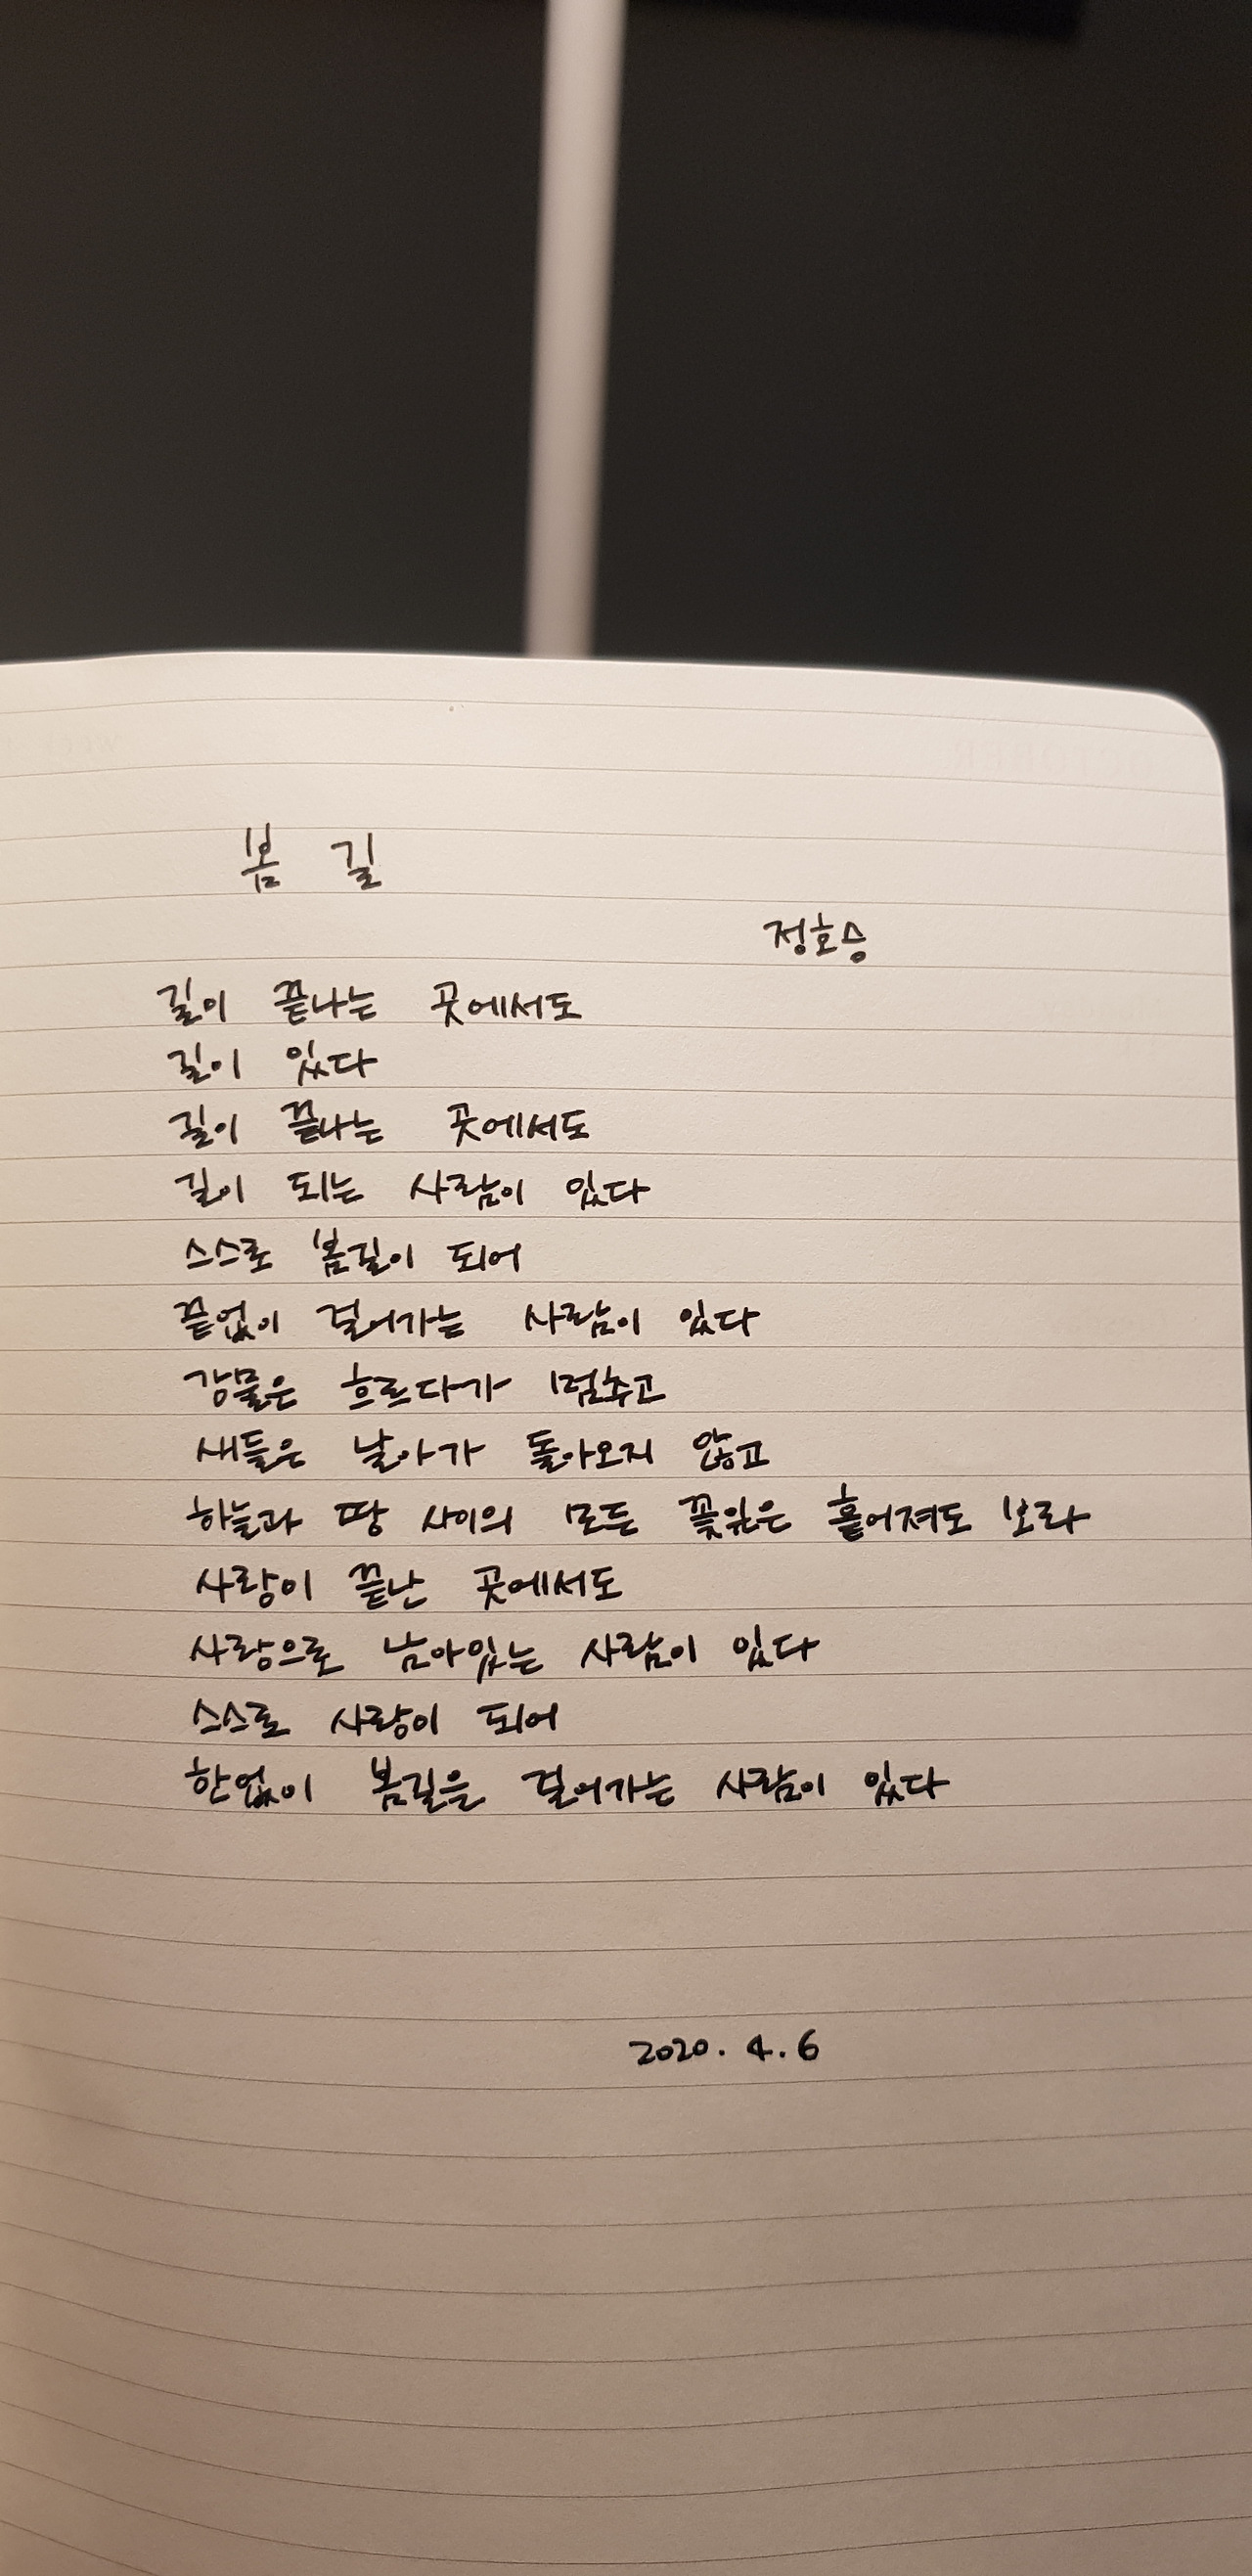 봄 길
정호승
길이 끝나는 곳에서도
길이 있다
길이 끝나는 곳에서도
길이 되는 사람이 있다
스스로 봄길이 되어
끝없이 걸어가는 사람이 있다
강물은 흐르다가 멈추고
새들은 날아가 돌아오지 않고
하늘과 땅 사이의 모든 꽃잎은 흩어져도 보라
사랑이 끝난 곳에서도
사랑으로 남아있는 사람이 있다
스스로 사랑이 되어
한없이 봄길을 걸어가는 사람이 있다
2020. 4. 6